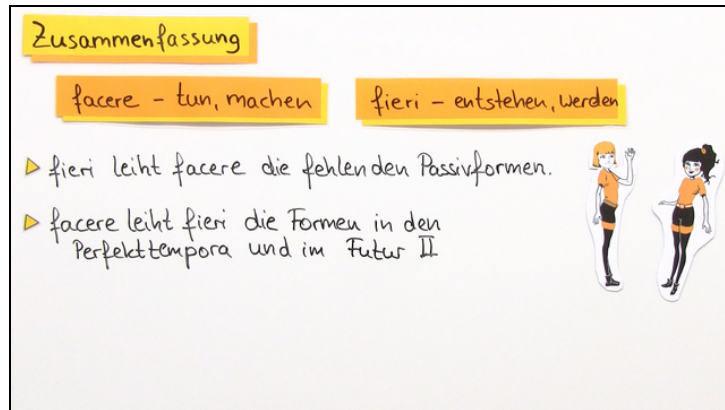 Zusammenfassung
facere - tun, machen
fieri - entstehen, werden
fieri leiht facere die fehlenden Passivformen.
facere leiht fieri die Formen in den
Perfekttempora und im Futur II